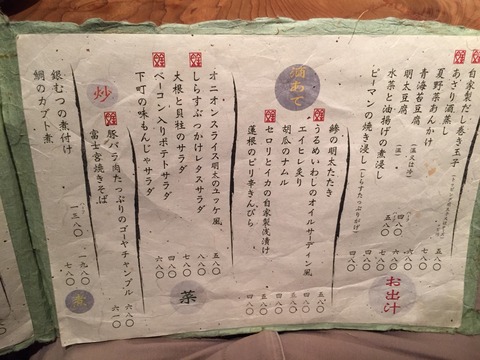 お出汁
自家製だし巻き玉子
あさり酒蒸し 六八〇
夏野菜あんかけ
青海苔豆腐 (温又は冷)
明太豆腐 (温) 四八〇
水菜と油揚げの煮浸し
ピーマンの焼き浸し (しらすたっぷりがけ)
酒あて
鯵の明太たたき 五八〇
うるめいわしのオイルサーディン風
エイヒレ炙り
胡瓜のナムル
セロリとイカの自家製浅漬け
蓮根のピリ辛きんぴら 四八〇
菜
オニオンスライス明太のユッケ風 五八〇
しらすぶっかけレタスサラダ 八八〇
大根と貝柱のサラダ 七八〇
ベーコン入りポテトサラダ 四八〇
下町の味もんじゃサラダ 六八〇
炒
豚バラ肉たっぷりのゴーヤチャンプル 六八〇
富士宮焼きそば
煮
銀むつの煮付け
鯛のカブト煮 七八〇